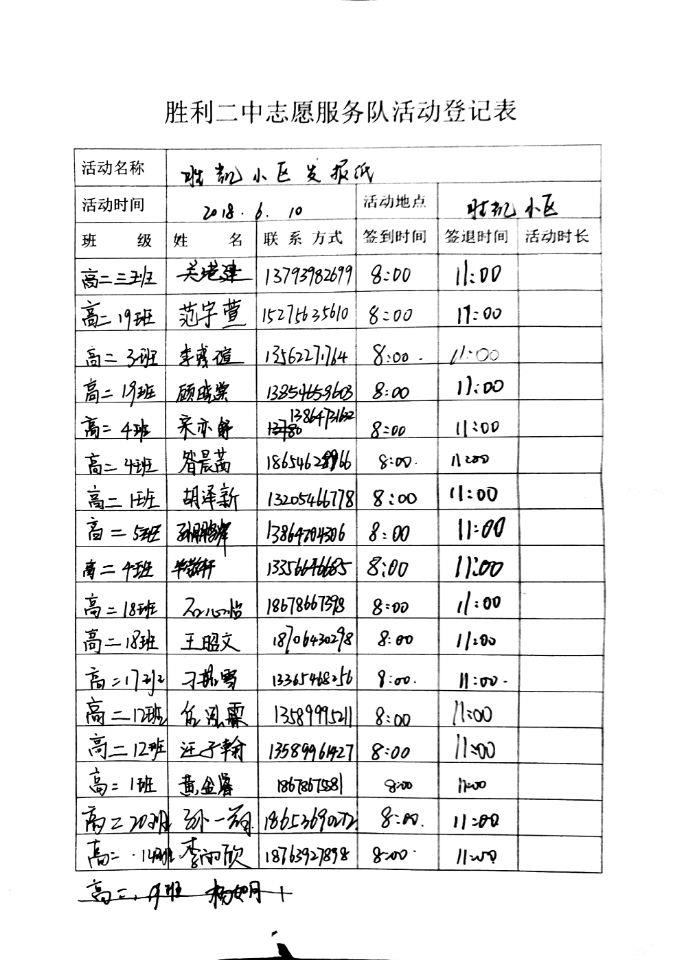 胜利二中志愿服务队活动登记表
活动名称 胜凯小区发报纸
活动时间 2018.6.10 活动地点 胜凯小区
班 级 姓 名 联系方式 签到时间 签退时间 活动时长
高二三班 13793982699 8:00 11:00
高二19班 范宇萱 15275635610 8:00 11:00
高二3班 8:00 11:00
高二19班 13854659603 8:00 11:00
高二4班 宋亦舒 8:00 11:00
高二4班 8:00 11:00
高二1班 胡泽新 13205466778 8:00 11:00
高二5班 13864704306 8:00 11:00
高二4班 8:00 11:00
高二18班 石心怡 18678667398 8:00 11:00
高二18班 王昭文 18706430298 8:00 11:00
高二17班 13365468256 8:00 11:00
高二12班 任泓霖 13589995211 8:00 11:00
高二12班 汪子翰 13589961427 8:00 11:00
高二1班 黄金睿 8:00 11:00
高二20班 18653690272 8:00 11:00
高二14班 李雨欣 18763927898 8:00 11:00
高二